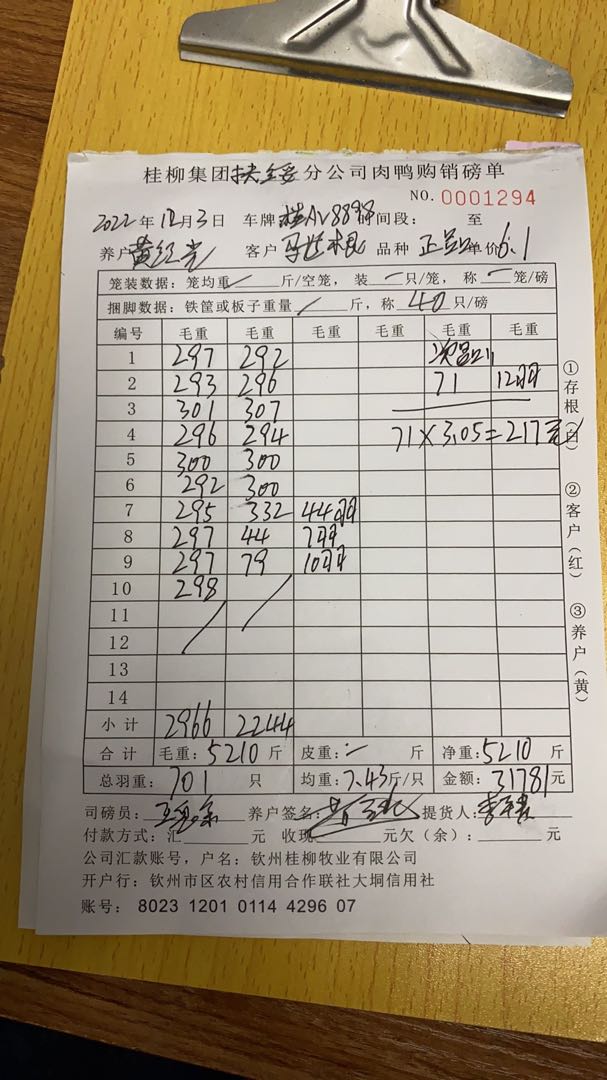 桂柳集团扶绥分公司肉鸭购销磅单
NO. 0001294
2022年12月3日 车牌 时间段: 至
养户 客户 品种 正品 单价6.1
笼装数据: 笼均重 斤/空笼, 装 只/笼, 称 笼/磅
捆脚数据: 铁筐或板子重量 斤, 称40只/磅
编号 毛重 毛重 毛重 毛重 毛重 毛重
1 297 292 次品
2 293 296 71 12羽
3 301 307
4 296 294 71×3.05=217元
5 300 300
6 292 300
7 295 332 44羽
8 297 44 7羽
9 297 79 10羽
10 298
11
12
13
14
小计 2966 2244
合计 毛重:5210斤 皮重:— 斤 净重:5210斤
总羽重: 701 只 均重:7.43斤/只 金额:31781元
司磅员: 养户签名: 提货人:
付款方式:汇 元 收现 元欠(余): 元
公司汇款账号, 户名: 钦州桂柳牧业有限公司
开户行: 钦州市区农村信用合作联社大垌信用社
账号: 8023 1201 0114 4296 07
①存根(白)
②客户(红)
③养户(黄)